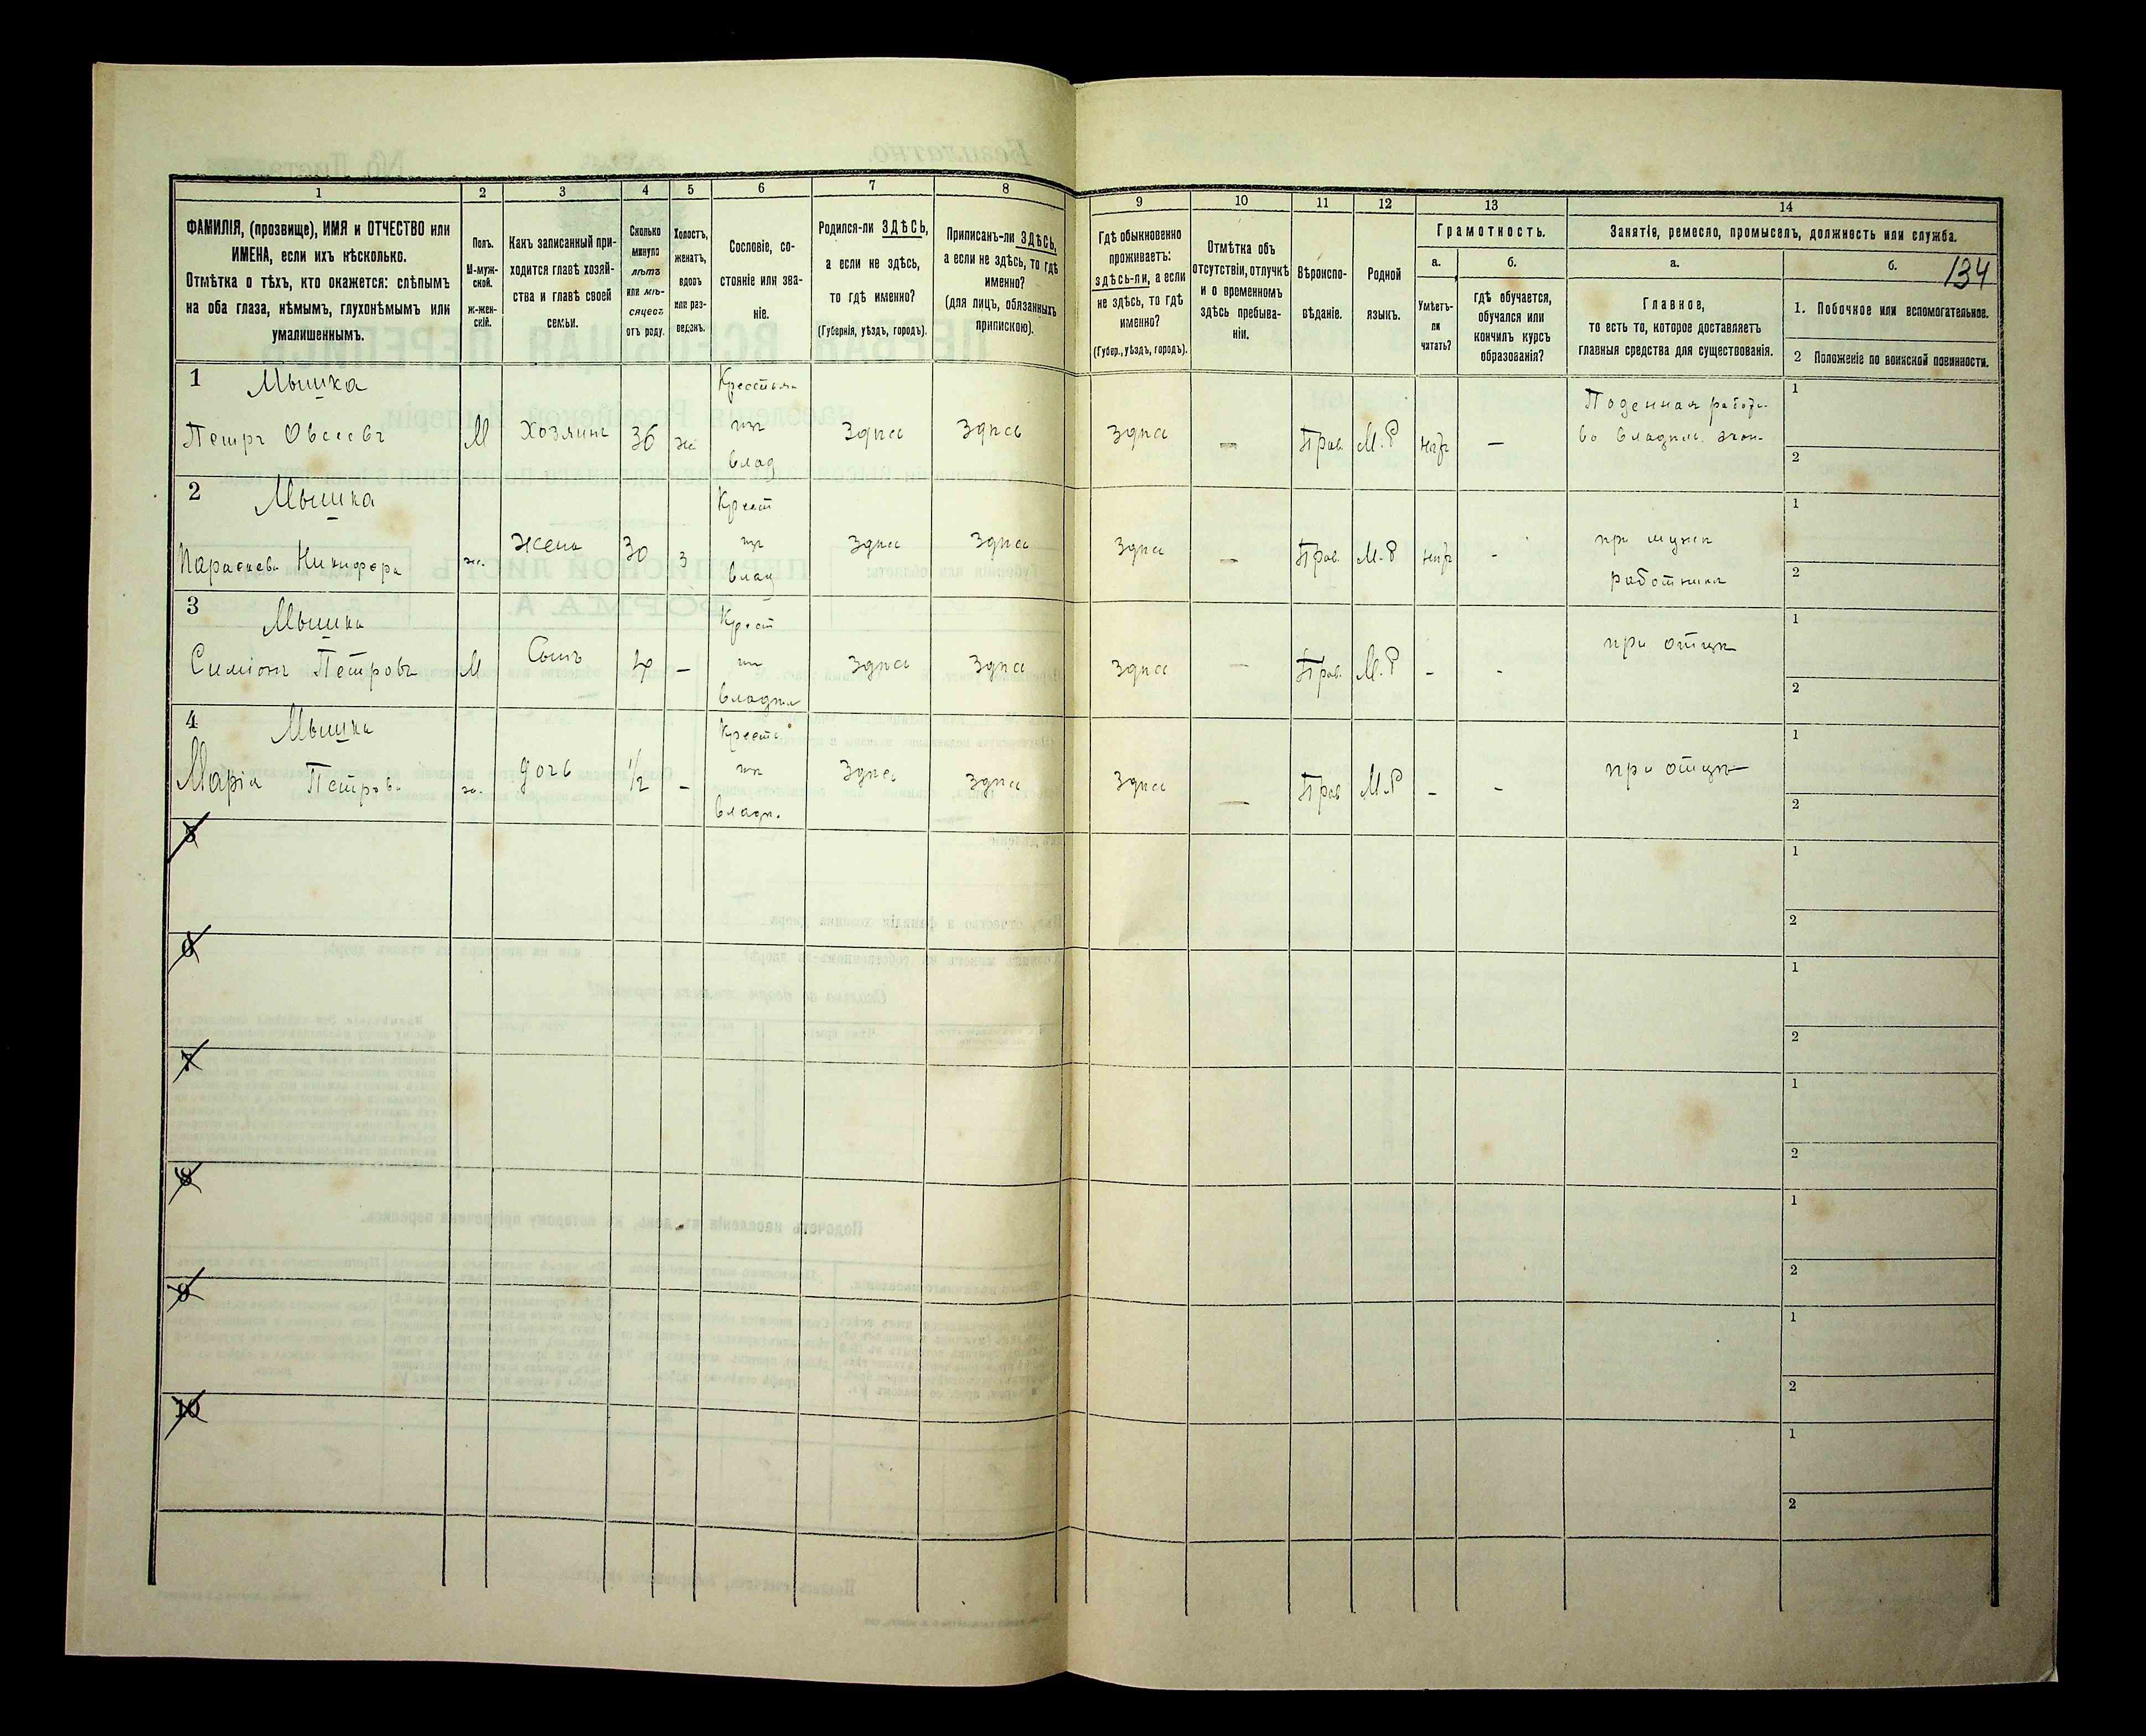 134
1
2
3
4
5
6
7
8
9
10
11
12
13
14
ФАМИЛІЯ, (прозвище), ИМЯ и ОТЧЕСТВО или
ИМЕНА, если ихъ нѣсколько.
Отмѣтка о тѣхъ, кто окажется: слѣпымъ
на оба глаза, нѣмымъ, глухонѣмымъ или
умалишеннымъ.
Полъ.
М-муж-
ской.
ж-жен-
скій.
Какъ записанный при-
ходится главѣ хозяй-
ства и главѣ своей
семьи.
Сколько
минуло
лѣтъ
или мѣ-
сяцевъ
отъ роду.
Холостъ,
женатъ,
вдовъ
или раз-
веденъ.
Сословіе, со-
стояніе или зва-
ніе.
Родился-ли ЗДѢСЬ,
а если не здѣсь,
то гдѣ именно?
(Губернія, уѣздъ, городъ).
Приписанъ-ли ЗДѢСЬ,
а если не здѣсь, то гдѣ
именно?
(для лицъ, обязанныхъ
припискою).
Гдѣ обыкновенно
проживаетъ:
здѣсь-ли, а если
не здѣсь, то гдѣ
именно?
(Губер., уѣздъ, городъ).
Отмѣтка объ
отсутствіи, отлучкѣ
и о временномъ
здѣсь пребыва-
ніи.
Вѣроиспо-
вѣданіе.
Родной
языкъ.
Грамотность.
а.
Умѣетъ-
ли
читать?
б.
гдѣ обучается,
обучался или
кончилъ курсъ
образованія?
Занятіе, ремесло, промыселъ, должность или служба.
а.
Главное,
то есть то, которое доставляетъ
главныя средства для существованія.
б.
1. Побочное или вспомогательное.
2 Положеніе по воинской повинности.
1 Мышка
Петръ Овсеевъ
М
Хозяинъ
36
же
Крестьян
изъ
влад
здѣсь
здѣсь
здѣсь
—
Прав.
М.Р
нѣтъ
—
Поденная работ.
во владѣл. экон.
1
2
2 Мышка
Параскева Никифора
ж.
жена
30
з
Крест
изъ
влад
здѣсь
здѣсь
здѣсь
—
Прав.
М.Р
нѣтъ
-
при мужѣ
работника
1
2
3 Мышка
Симіонъ Петровъ
М
Сынъ
4
—
Крест
изъ
владѣл
здѣсь
здѣсь
здѣсь
—
Прав.
М.Р
-
-
при отцѣ
1
2
4 Мышка
Марія Петрова
ж.
дочь
1/2
-
Крестъ
изъ
владѣ.
здѣсь
здѣсь
здѣсь
—
Прав
М.Р
-
-
при отцѣ
1
2
5
1
2
6
1
2
7
1
2
8
1
2
9
1
2
10
1
2